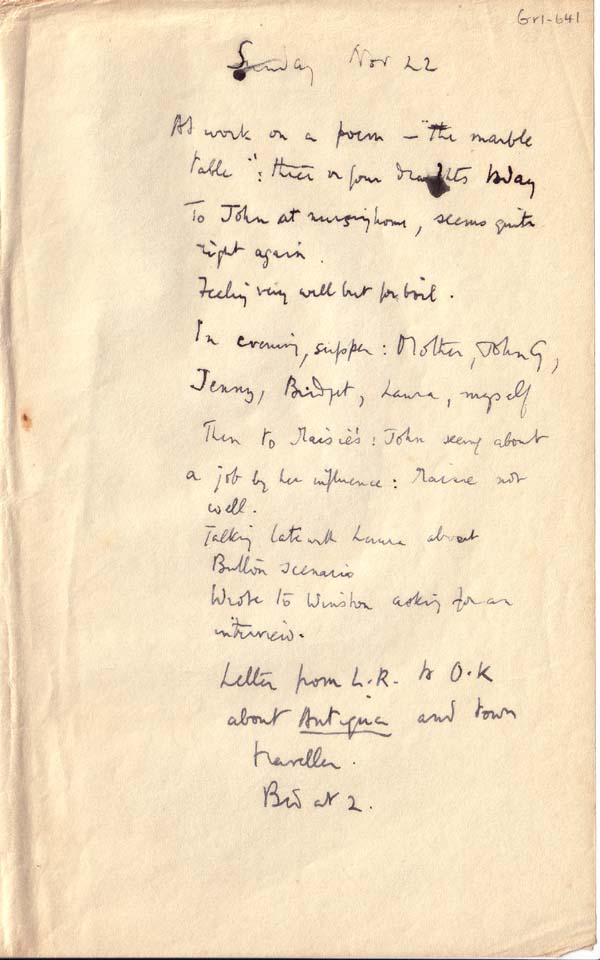 Gr1-641
Sunday Nov 22
At work on a poem – "The marble
table": three or four draughts today
To John at nursinghome, seems quite
right again.
Feeling very well but for boil.
In evening, supper: Mother, John G,
Jenny, Bridget, Laura, myself
Then to Maisie's: John seeing about
a job by her influence: Maisie not
well.
Talking late with Laura about
Button scenario
Wrote to Winston asking for an
interview.
Letter from L.R. to O.K
about Antigua and town
traveller.
Bed at 2.